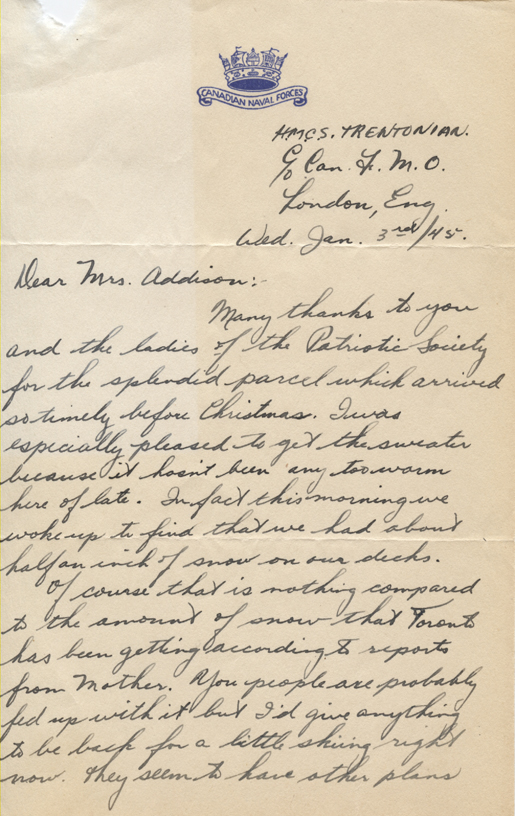 CANADIAN NAVAL FORCES
H.M.C.S. TRENTONIAN.
C/o Can. F. M. O.
London, Eng.
Wed. Jan. 3rd/45.
Dear Mrs. Addison:-
Many thanks to you
and the ladies of the Patriotic Society
for the splendid parcel which arrived
so timely before Christmas. I was
especially pleased to get the sweater
because it hasn't been any too warm
here of late. In fact this morning we
woke up to find that we had about
half an inch of snow on our decks.
Of course that is nothing compared
to the amount of snow that Toronto
has been getting according to reports
from Mother. You people are probably
fed up with it but I'd give anything
to be back for a little skiing right
now. They seem to have other plans